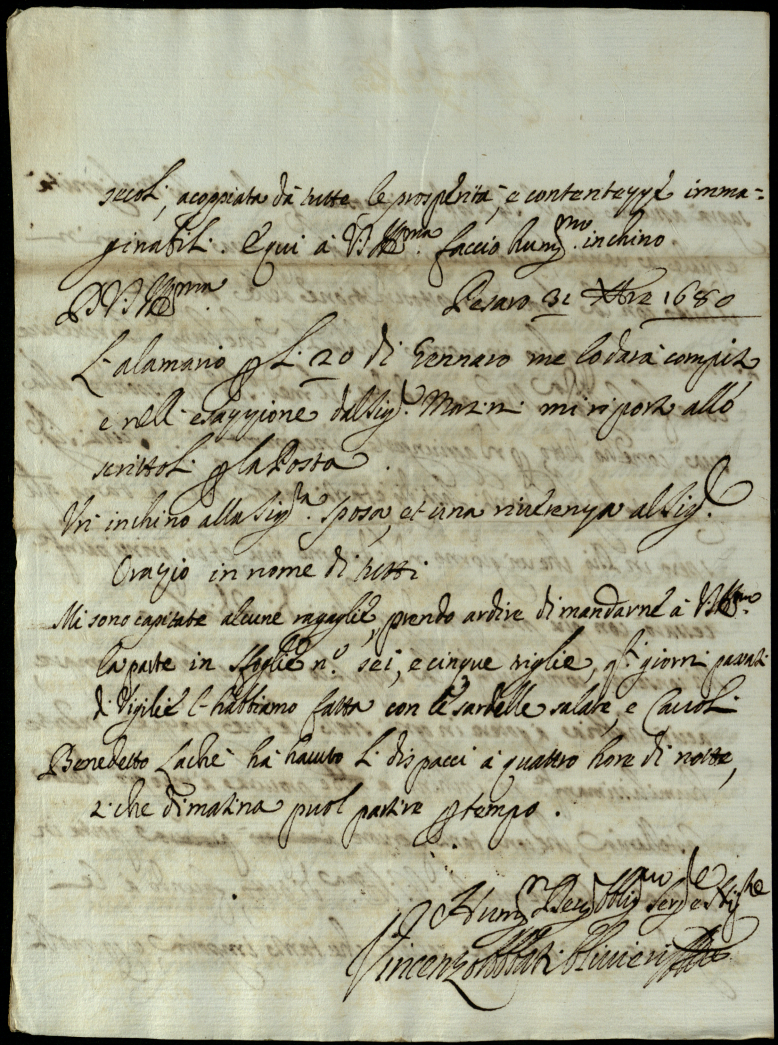 secoli, acoppiata dà tutte le prosperità, e contentezze imma=
ginabili. E qui à V.S. Ill.ma faccio hum.mo inchino
D.V.S. Ill.ma Pesaro 31 Xbre 1680
L'alamario p li 20 di Gennaro me lo darà compito,
e nell'esazzione dal Sig.r Marini mi riporto allo
scritto li p la Posta.
Un inchino alla Sig.ra Sposa, et una riverenza al Sig.r
Orazio in nome di tutti
Mi sono capitate alcune ragaglie, prendo ardire di mandarne à V.S. Ill.ma
la parte in sfoglie n.o sei, e cinque triglie, q.ti giorni passati
di Vigilie l'habbiamo fatta con le sardelle salate, e Cavoli
Benedetto Lachè hà havuto li dispacci à quattro hore di notte,
si che dimatina puol partire p tempo.
Hum.mo Dev.mo Obblig.mo Ser.re
Vincenzo Abbati Olivieri